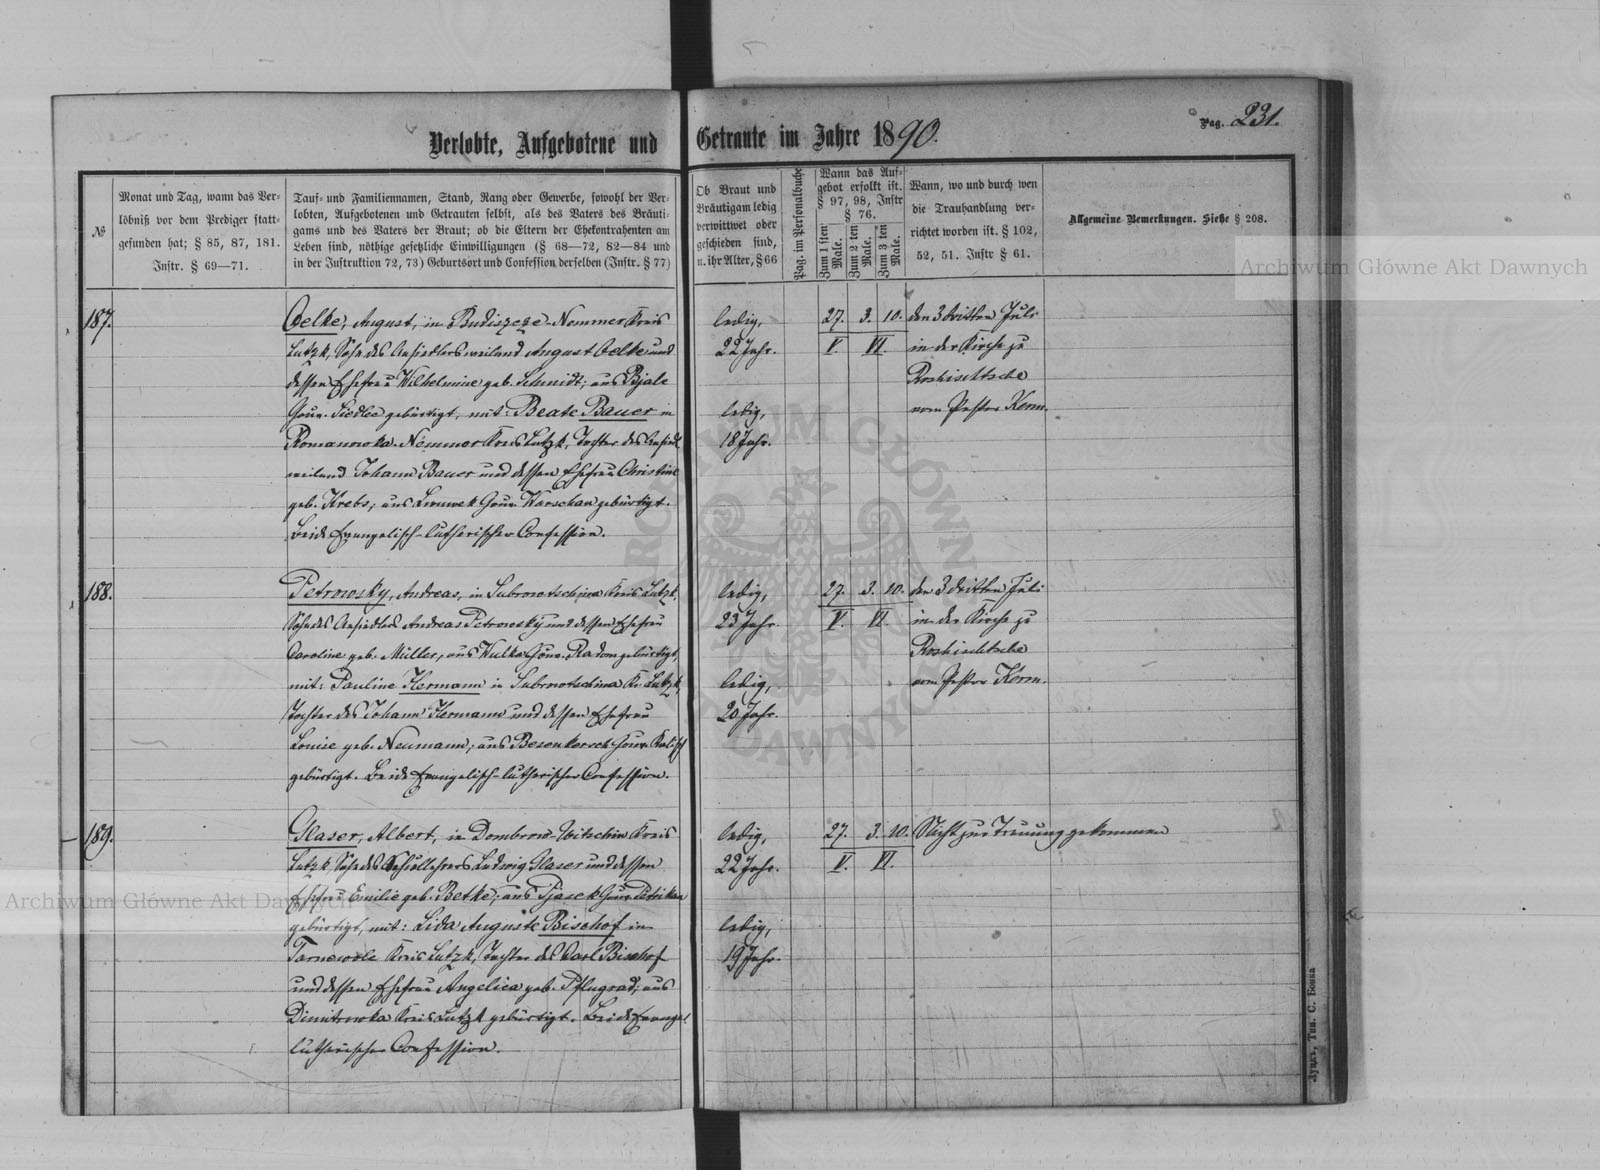 Verlobte, Aufgebotene und Getraute im Jahre 1890.
Pag. 231.
№
Monat und Tag, wann das Ver-
löbniß vor dem Prediger statt-
gefunden hat; § 85, 87, 181.
Instr. § 69—71.
Tauf- und Familiennamen, Stand, Rang oder Gewerbe, sowohl der Ver-
lobten, Aufgebotenen und Getrauten selbst, als des Vaters des Bräuti-
gams und des Vaters der Braut; ob die Eltern der Ehekontrahenten am
Leben sind, nöthige gesetzliche Einwilligungen (§ 68—72, 82—84 und
in der Instruktion 72, 73) Geburtsort und Confession derselben (Instr. § 77)
Ob Braut und
Bräutigam ledig
verwittwet oder
geschieden sind,
u. ihr Alter, § 66
Pag. im Personalbuche
Wann das Auf-
gebot erfolgt ist.
§ 97, 98, Instr
§ 76.
Zum 1 sten
Male.
Zum 2 ten
Male.
Zum 3 ten
Male.
Wann, wo und durch wen
die Trauhandlung ver-
richtet worden ist. § 102,
52, 51. Instr § 61.
Allgemeine Bemerkungen. Siehe § 208.
187.
Oelke, August, in Budiszcze-Nemmer Kreis
Lutzk, Sohn des Ansiedlers weiland August Oelke und
dessen Ehefrau Wilhelmine geb. Schmidt; aus Bjale
Gouv. Siedlce gebürtigt, mit: Beate Bauer in
Romanowka-Nemmer Kreis Lutzk, Tochter des Ansiedl.
weiland Johann Bauer und dessen Ehefrau Christine
geb. Krebs; aus Gouv. Warschau gebürtigt.
Beide Evangelisch-lutherischer Confession.
ledig,
22 Jahr.
ledig,
18 Jahr.
27. 3. 10.
V. VI.
den 3 dritten Juli
in der Kirche zu
Roshischtsche
vom Pastor Kerm.
188.
Petrowsky, Andreas, in Subrowtschina Kreis Lutzk,
Sohn des Ansiedlers Andreas Petrowsky und dessen Ehefrau
Caroline geb. Müller, aus Wulka Gouv. Radom gebürtigt,
mit: Pauline Hermann in Subrowtschina Kr. Lutzk,
Tochter des Johann Hermann und dessen Ehefrau
Louise geb. Neumann; aus Gouv. Kalisch
gebürtigt. Beide Evangelisch-lutherischer Confession.
ledig,
23 Jahr.
ledig,
20 Jahr.
27. 3. 10.
V. VI.
den 3 dritten Juli
in der Kirche zu
Roshischtsche
vom Pastor Kerm.
189.
Glaser, Albert, in Kreis
Lutzk, Sohn des Schullehrers Ludwig Glaser und dessen
Ehefrau Emilie geb. Betke; aus Pjasek Gouv. Petrikau
gebürtigt, mit: Lida Auguste Bischof in
Tarnewole Kreis Lutzk, Tochter des Carl Bischof
und dessen Ehefrau Angelica geb. Pflugrad; aus
Dimitrowka Kreis Lutzk gebürtigt. Beide Evangel.
lutherischer Confession.
ledig,
22 Jahr.
ledig,
19 Jahr.
27. 3. 10.
V. VI.
Nicht zur Trauung gekommen
Луцкъ, Тип. С. Бонка
Archiwum Główne Akt Dawnych
Archiwum Główne Akt Dawnych
ARCHIWUM GŁÓWNE AKT DAWNYCH